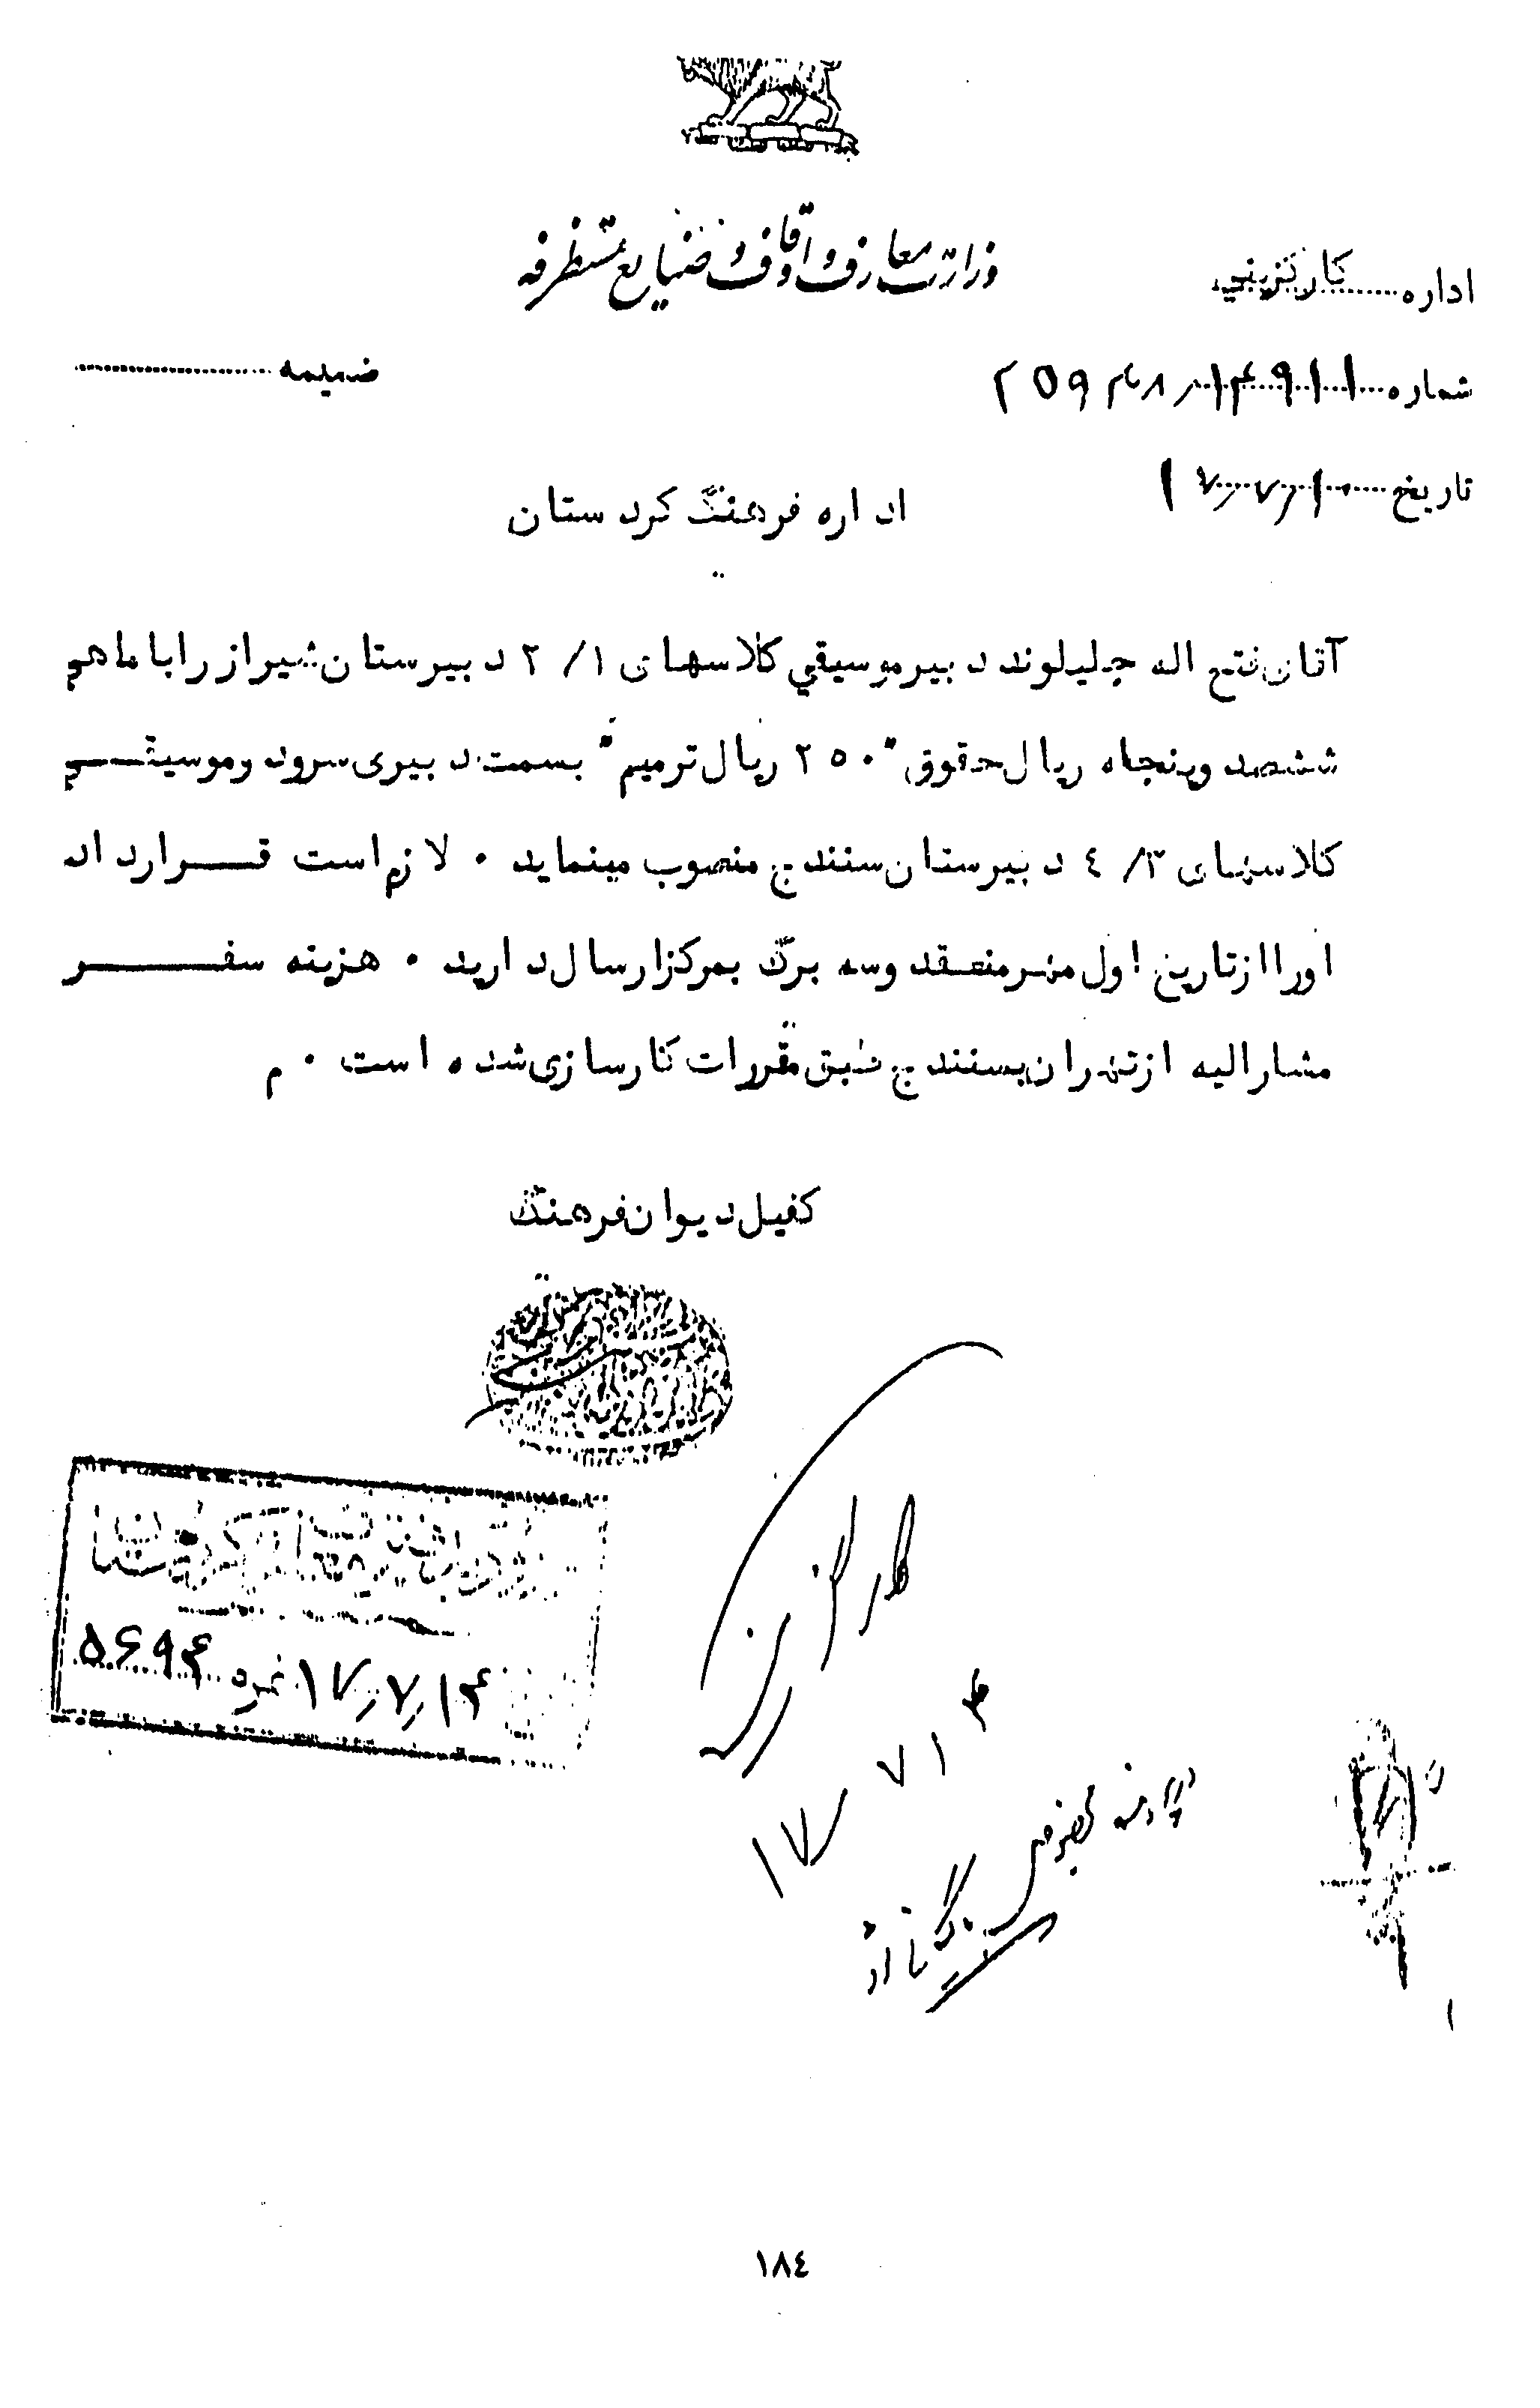 وزارت معارف و اوقاف و صنایع مستظرفه
اداره کارگزینی
شماره ۱۴۹۱۱
ضمیمه
تاریخ ۱۷٫۷٫۱۰
اداره فرهنگ کردستان
آقای فتح اله جلیلوند دبیر موسیقی کلاسهای ۲/۱ دبیرستان شیراز را با ماهی
ششصد و پنجاه ریال حقوق "۲۵۰ ریال ترمیم" بسمت دبیری سرود و موسیقی
کلاسهای ۴/۳ دبیرستان سنندج منصوب مینماید ۰ لازم است قرارداد
او را از تاریخ اول مهر منعقد و سه برگ بمرکز ارسال دارید ۰ هزینه سفر
مشارالیه از تهران بسنندج طبق مقررات کارسازی شده است ۰ م
کفیل دیوان فرهنگ
۱۷٫۷٫۱۴ نمره ۵۶۹۴
کارگزینی
۱۷ ۷ ۱۴
۱۸٤